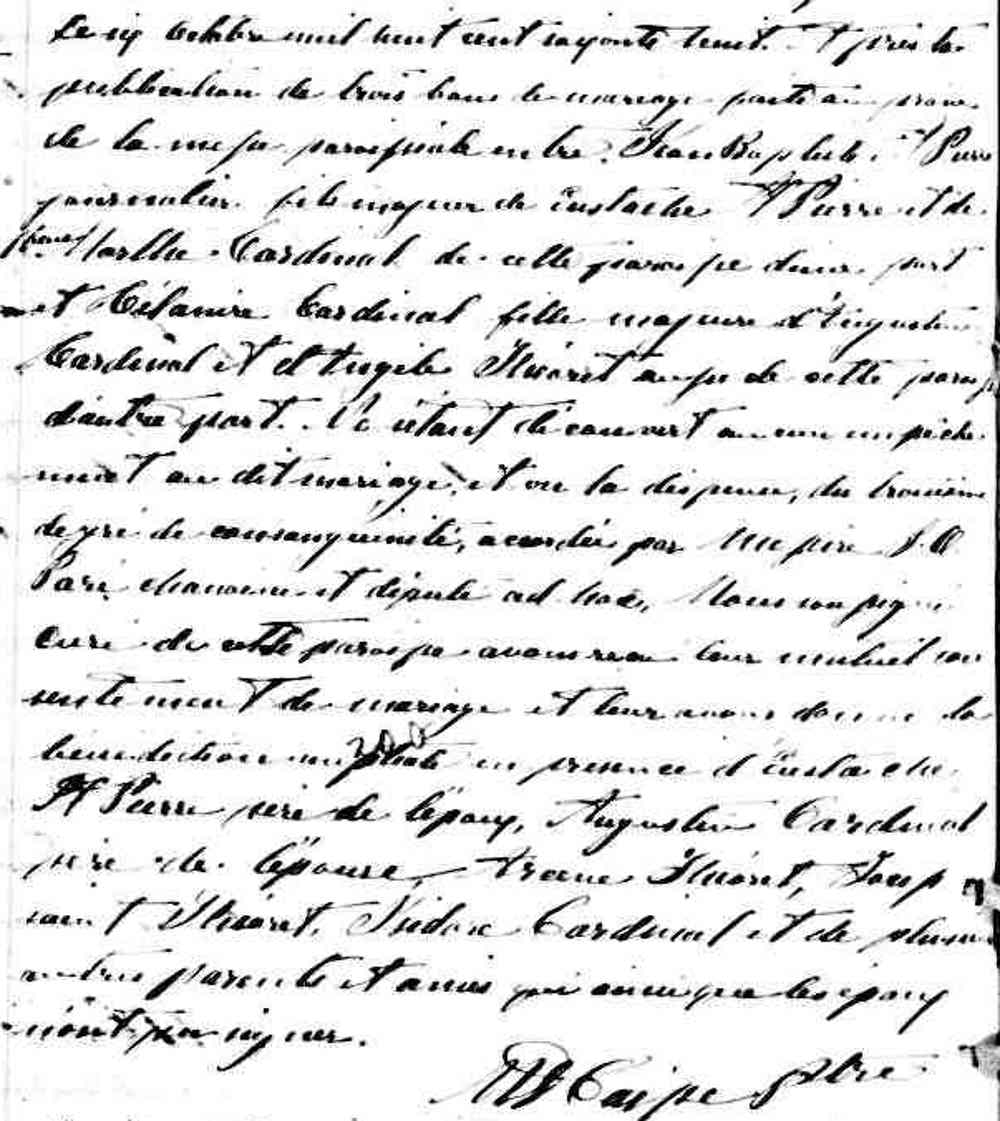 Le six octobre mil huit cent soixante huit. Après la
publication de trois bans de mariage faite au prone
de la messe paroissiale entre Jean Baptiste St Pierre
journalier fils majeur de Eustache St Pierre et de
Marthe Cardinal de cette paroisse d'une part
et Cardinal fille majeure d'Augustin
Cardinal et d'Angèle Thuoret aussi de cette paroisse
d'autre part. Ne s'étant découvert aucun empêche
ment au dit mariage, et vu la dispense, du troisième
degré de consanguinité, accordée par Messire
Paré chanoine et député ad hoc, Nous soussigné
curé de cette paroisse avons reçu leur mutuel con
sentement de mariage et leur avons donné la
bénédiction nuptiale en présence d'Eustache
St Pierre père de l'époux, Augustin Cardinal
père de l'épouse, Thuoret,
Thuoret, Isidore Cardinal et de plusieurs
autres parents et amis qui ainsi que les époux
n'ont pu signer.
Ptre